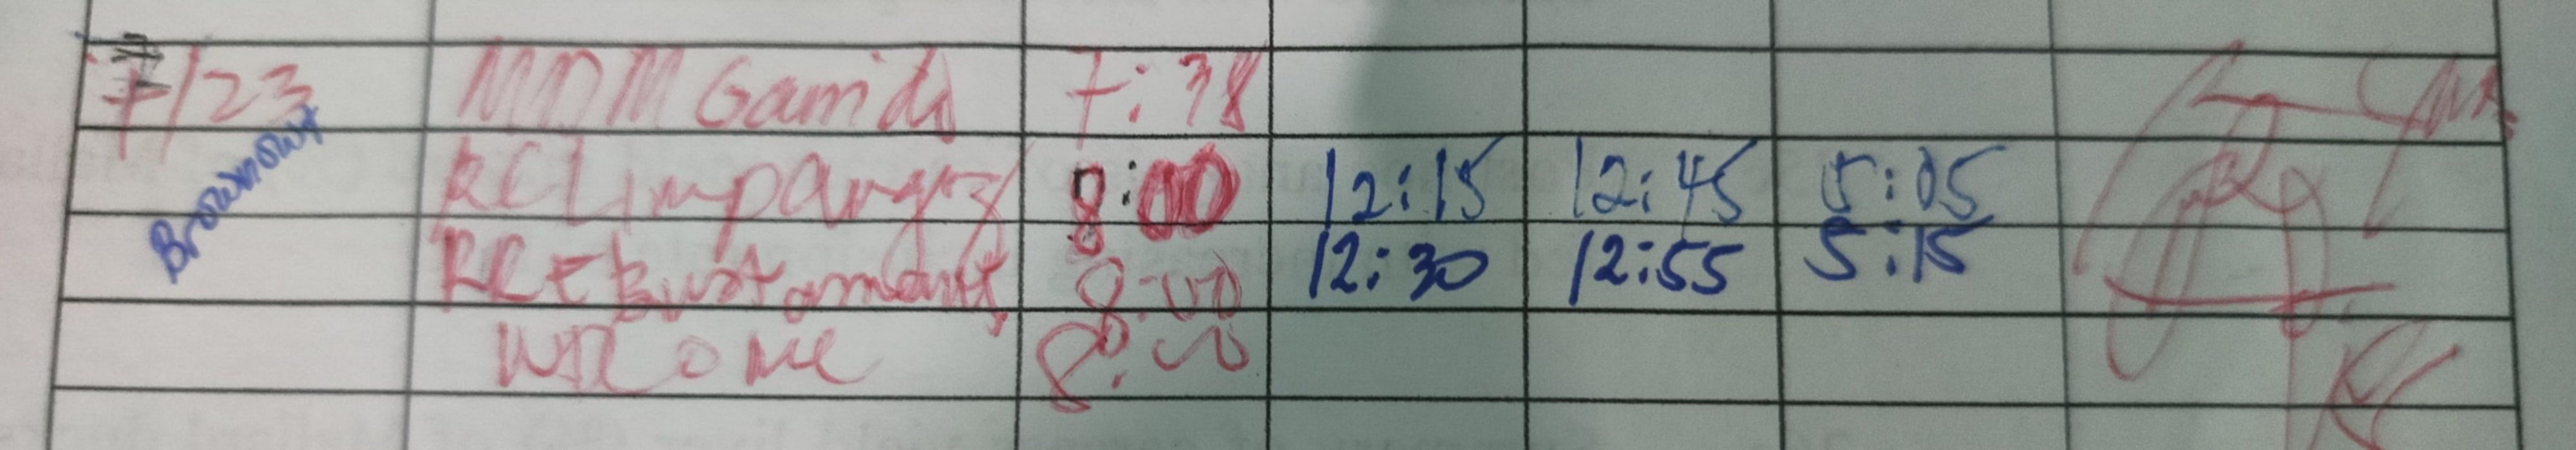 7/23 MDM Gamido 7:38
Brownout
RCLimpangog 8:00 12:15 12:45 5:05
RRE Bustamante 8:00 12:30 12:55 5:15
8:00